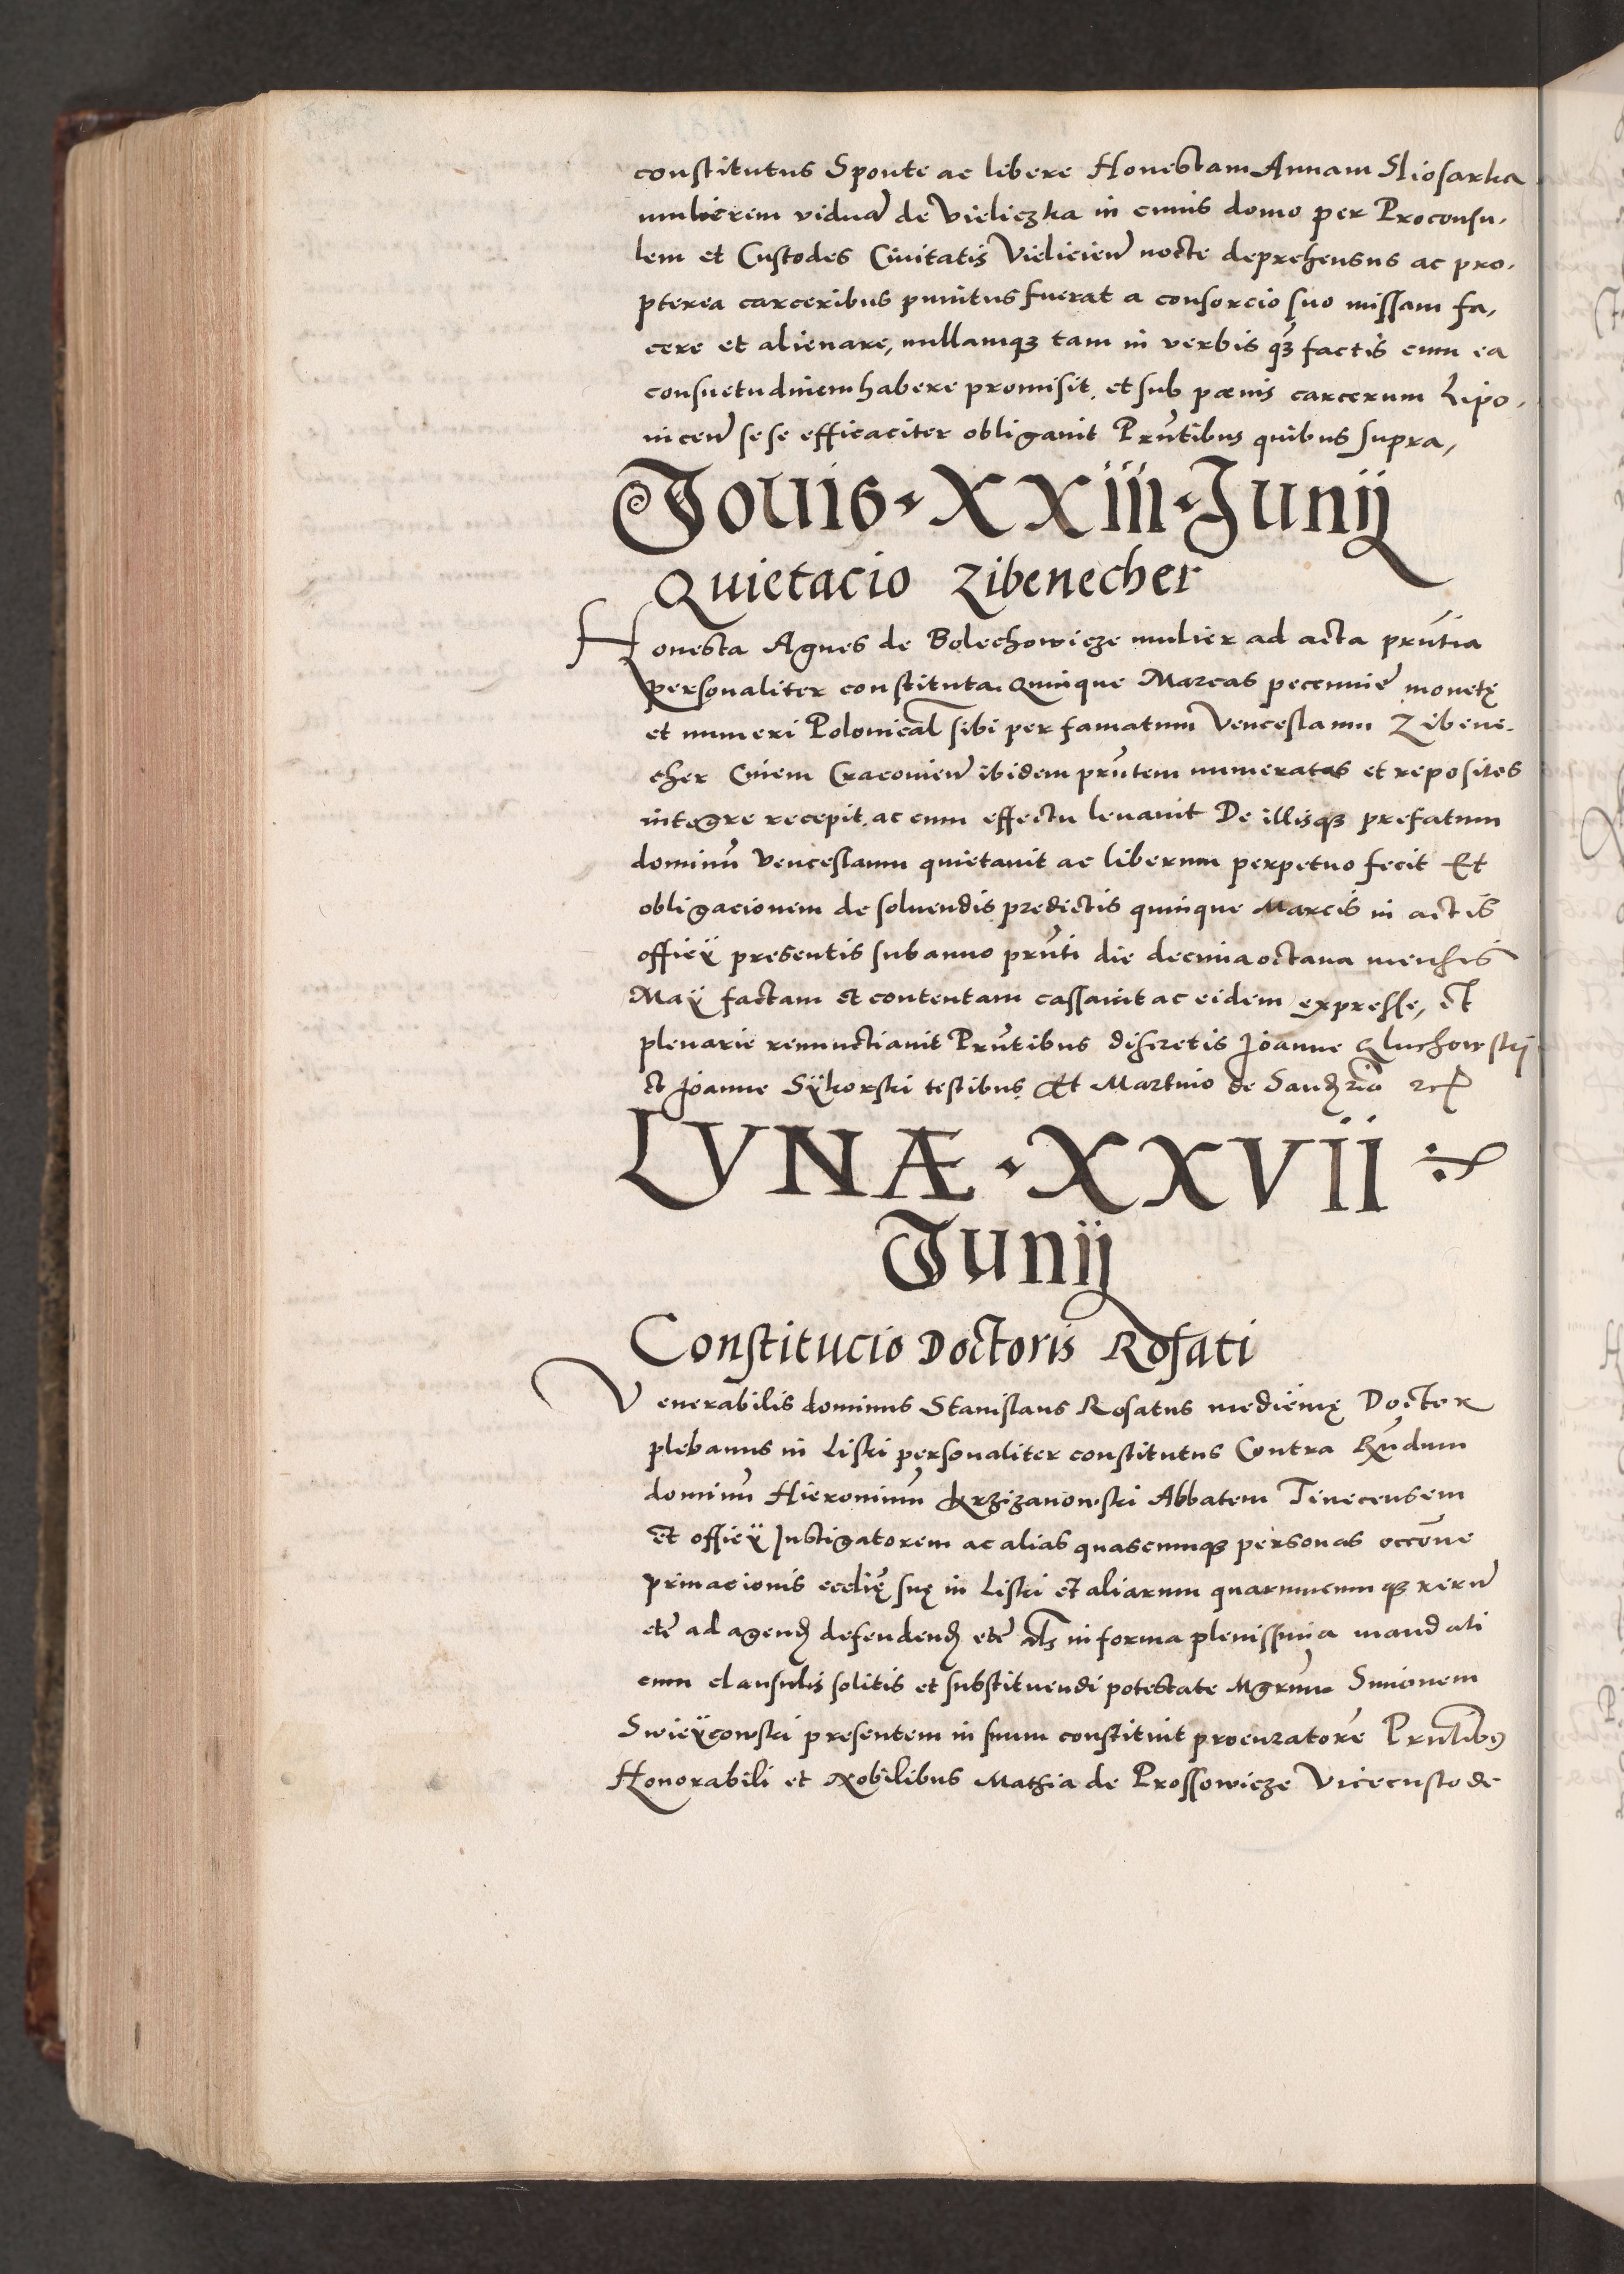 constitutus Sponte ac libere Honestam Annam Sliosarka
mulierem viduã de Vieliczka in cuius domo per Proconsu,
lem et Custodes Ciuitatis Vielicieñ nocte deprehensus ac pro,
pterea carceribus punitus fuerat a consorcio suo missam fa,
cere et alienare, nullamqꝫ tam in verbis qꝫ̃ factis cum ea
consuetudinem habere promisit, et sub pœnis carcerum Lipo,
uiceñ sese efficaciter obligauit Prñtibus quibus supra,
Jouis · XXiii · Junij
Quietacio Zibenecher
Honesta Agnes de Bolechowicze mulier ad acta prñtia
personaliter constituta. Quinque Marcas pecunie monetę
et numeri Polonical̃ sibi per famatum Venceslaum Zibene,
cher Ciuem Cracouieñ ibidem prñtem numeratas et repositas
integre recepit, ac cum effectu leuauit De illisqꝫ prefatum
dominũ Venceslaum quietauit ac liberum perpetuo fecit Et
obligacionem de soluendis predictis quinque Marcis in actis
officÿ presentis sub anno prñti die decima octaua mensis
Maÿ factam et contentam cassauit ac eidem expresse, et
plenarie renunctiauit Prñtibus discretis Joanne Gluchowskj
et Joanne Sÿkorski testibus Et Martino de Sandʒ̃
LVNÆ · XXVII
Junij
Constitucio Doctoris Rosati
Venerabilis dominus Stanislaus Rosatus medicinę Doctor
plebanus in Liski personaliter constitutus Contra Rñdum
dominũ Hieronimũ Krzizanowski Abbatem Tinecensem
et officÿ Instigatorem ac alias quascumqꝫ personas occõne
priuacionis ecclię̃ suę in Liski et aliarum quarumcumqꝫ rerũ
etc̃ ad agendʒ defendendʒ etc̃ als̃ in forma plenissima mandati
cum clausulis solitis et substituendi potestate Mgrum̃ Simonem
Swieÿcowski presentem in suum constituit procuratorẽ Prñtibꝫ
Honorabili et Nobilibus Mathia de Prossowicze Vicecustode